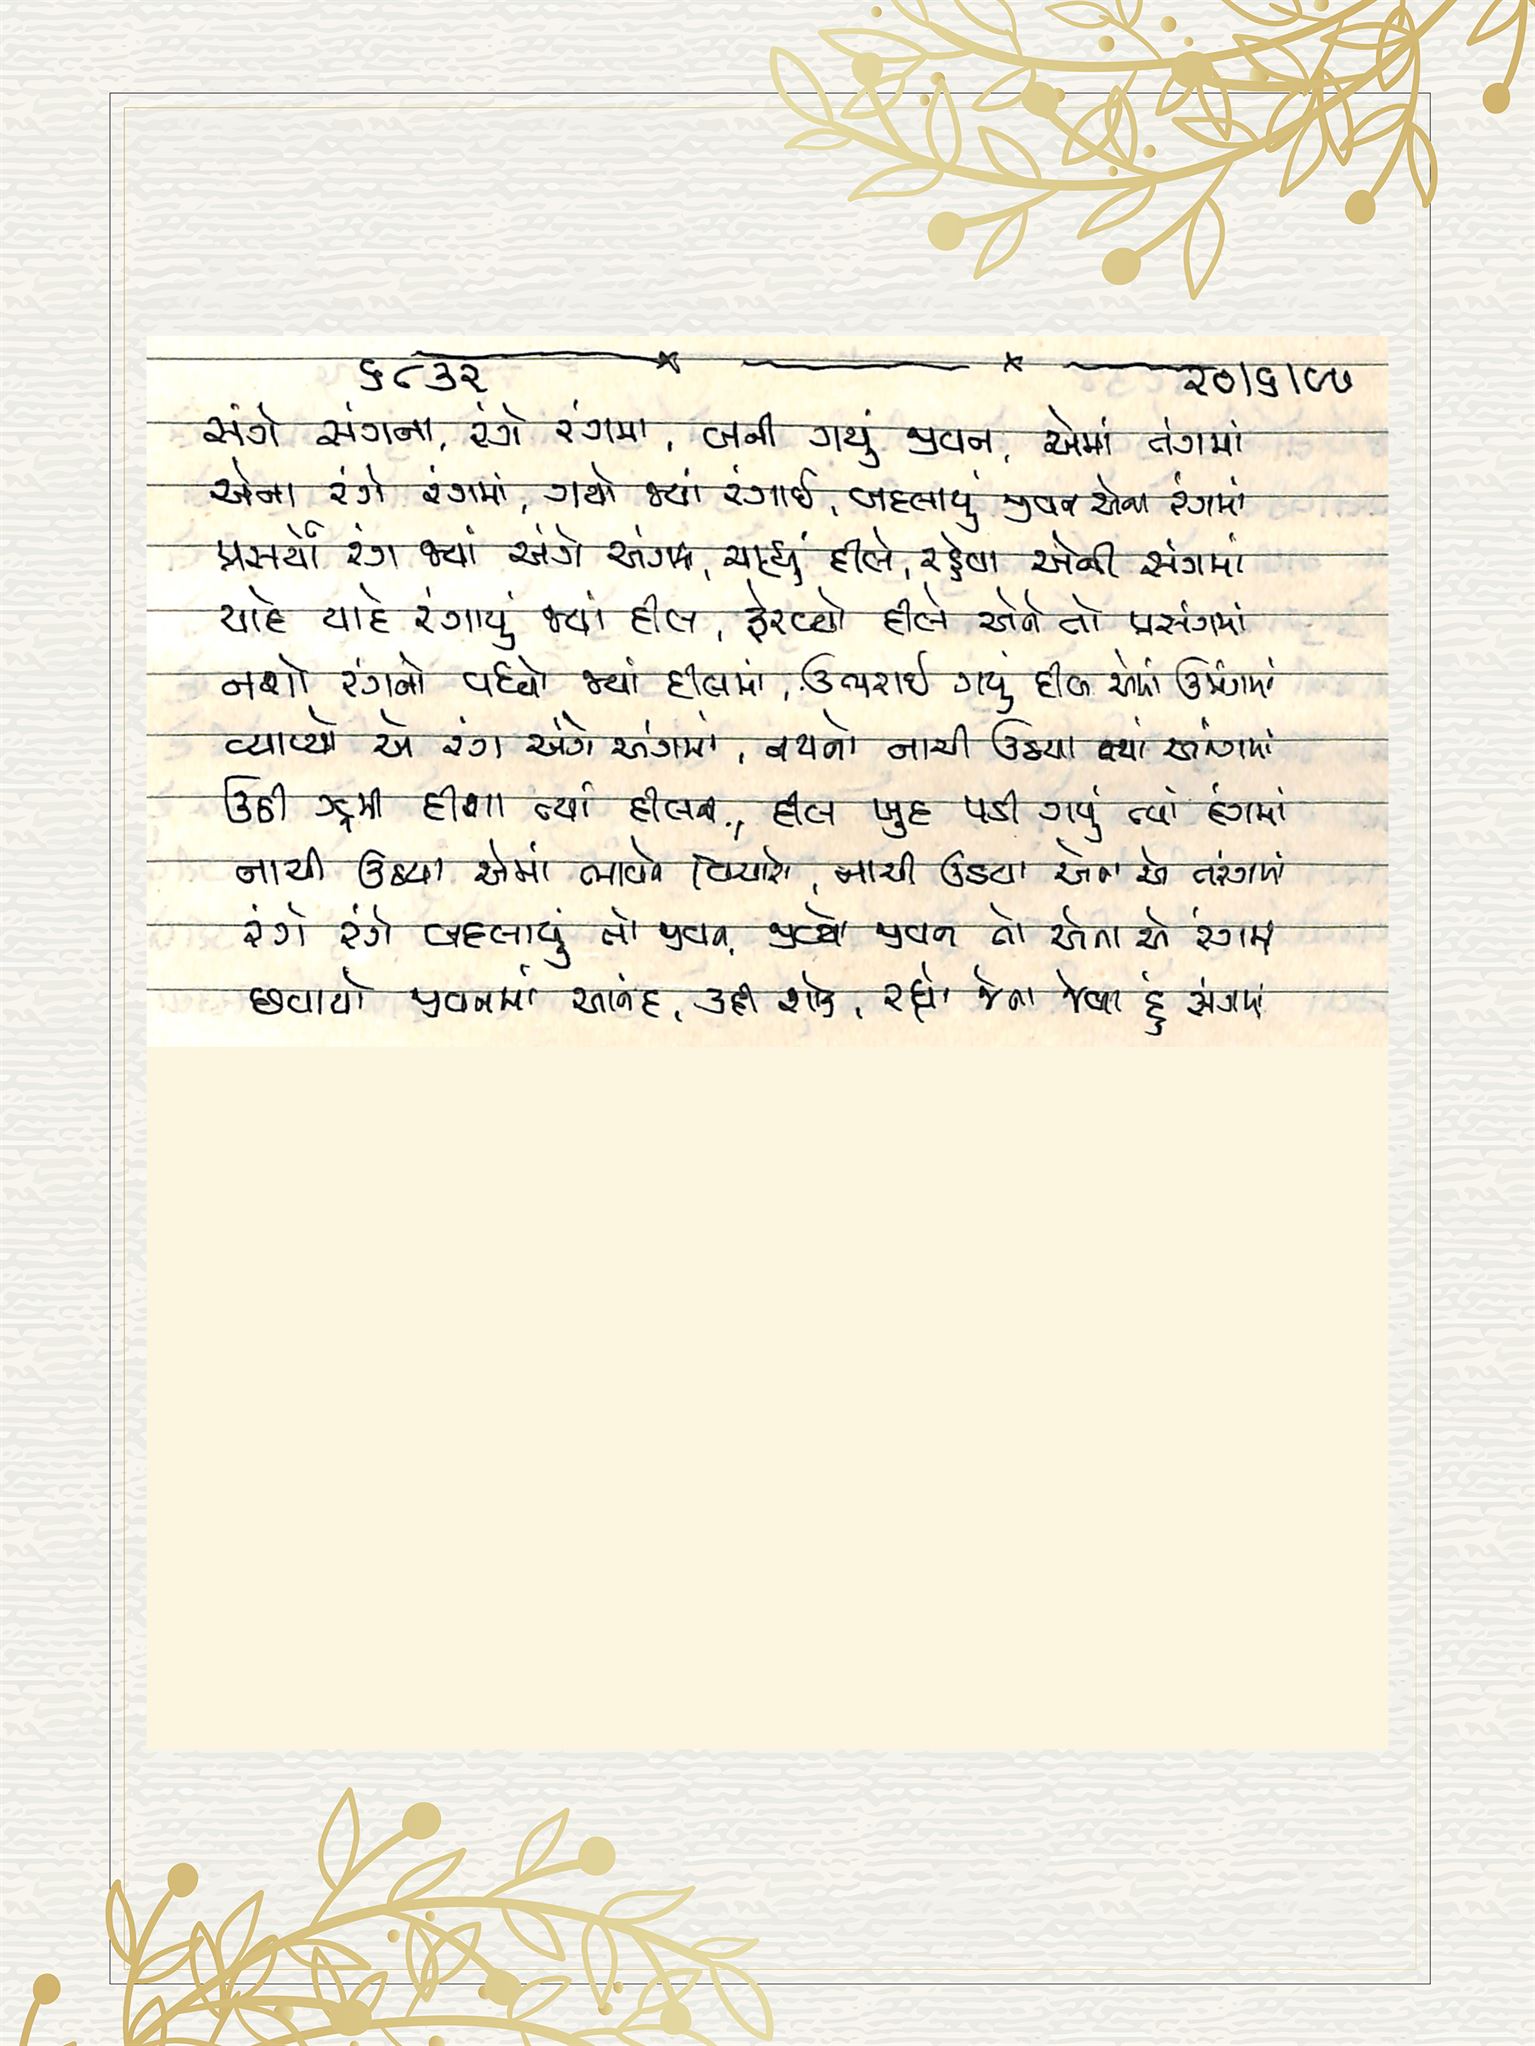 ૬૮૩૨ ૨૦/૬/૯૭
સંગે સંગના, રંગે રંગમા, બની ગયું જીવન, એમાં તંગમાં
એના રંગે રંગમાં, ગયો જ્યાં રંગાઈ, બદલાયું જીવન એના રંગમાં
પ્રસર્યો રંગ જ્યાં અંગે અંગમાં, ચાહ્યું દીલે, રહેવા એની સંગમાં
યાદે યાદે રંગાયું જ્યાં દીલ, ફેરવ્યો દીલે એને તો પ્રસંગમાં
નશો રંગનો વધ્યો જ્યાં દીલમાં, ઉભરાઈ ગયું દીલ એમાં ઉમંગમાં
વ્યાપ્યો એ રંગ અંગે અંગમાં, નયનો નાચી ઉઠયા ત્યાં
ઉઠી ઝુમી દીશા ત્યાં દીલની, દીલ ખુદ પડી ગયું ત્યાં દંગમાં
નાચી ઉઠયા એમાં ભાવોને વિચારો, નાચી ઉઠયા એના એ તરંગમાં
રંગે રંગે બદલાયું તો જીવન, જીવ્યો જીવન તો એના એ રંગમાં
છવાયો જીવનમાં આનંદ, ઉઠી શોક, રહ્યો જેના જેવા હું સંગમાં